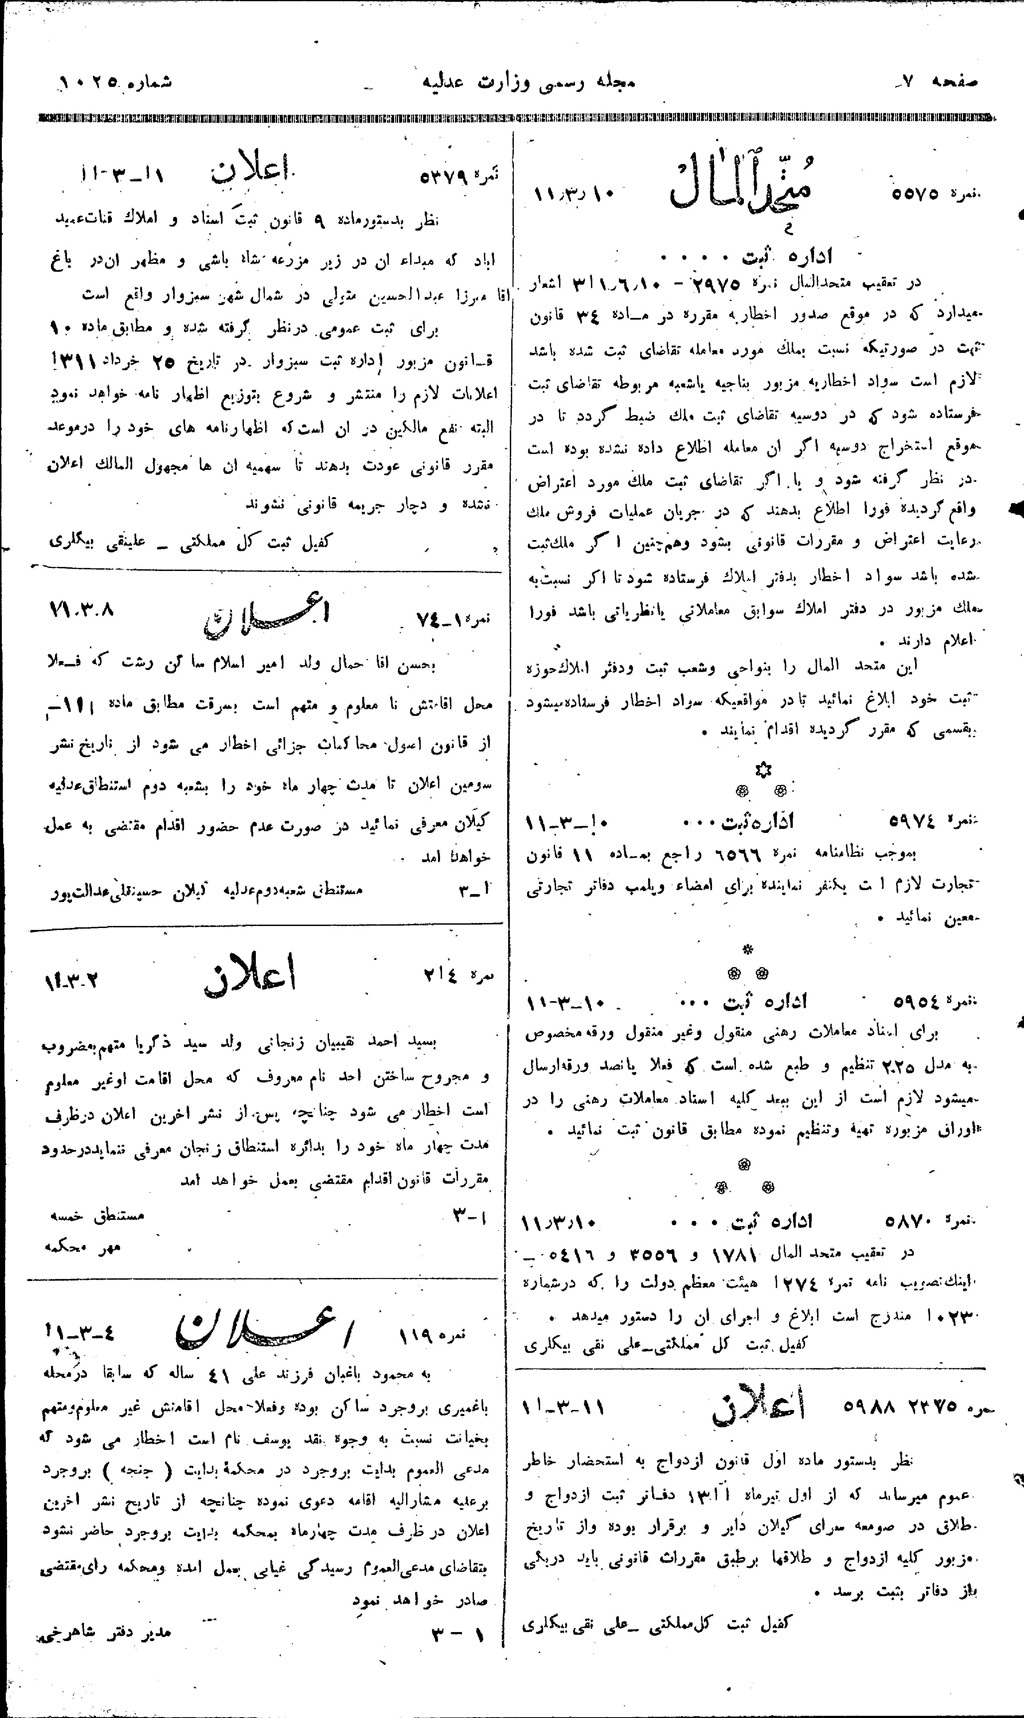 صفحه ۷
مجله رسمی وزارت عدلیه
شماره ۱۰۲۵
نمره ۵۵۷۵
متحدالمال
۱۱٫۳٫۱۰
اداره ثبت . . . .
در تعقیب متحدالمال نمره ۲۹۷۵ – ۳۱۱٫۶٫۱۰ اشعار
میدارد که در موقع صدور اخطاریه مقرره در ماده ۳۴ قانون
ثبت در صورتیکه نسبت بملك مورد معامله تقاضای ثبت شده باشد
لازم است سواد اخطاریه مزبور بناحیه یاشعبه مربوطه تقاضای ثبت
فرستاده شود که در دوسیه تقاضای ثبت ملك ضبط گردد تا در
موقع استخراج دوسیه اگر ان معامله اطلاع داده نشده بوده است
در نظر گرفته شود و یا اگر تقاضای ثبت ملك مورد اعتراض
واقع گردیده فورا اطلاع بدهند که در جریان عملیات فروش ملك
رعایت اعتراض و مقررات قانونی بشود وهم‌چنین اگر ملك ثبت
شده باشد سواد اخطار بدفتر املاك فرستاده شود تا اکر نسبت به
ملك مزبور در دفتر املاك سوابق معاملاتی یانظریاتی باشد فورا
اعلام دارند .
این متحد المال را بنواحی وشعب ثبت ودفتر املاك حوزه
ثبت خود ابلاغ نمائید تا در مواقعیکه سواد اخطار فرستاده میشود
بقسمی که مقرر گردیده اقدام نمایند .
نمره ۵۹۷۴
اداره ثبت . . .
۱۰–۳–۱۱
بموجب نظامنامه نمره ۶۵۶۶ راجع بماده ۱۱ قانون
تجارت لازم است یکنفر نماینده برای امضاء وپلمب دفاتر تجارتی
معین نمائید .
نمره ۵۹۵۴
اداره ثبت . . .
۱۰–۳–۱۱
برای اسناد معاملات رهنی منقول وغیر منقول ورقه مخصوص
به مدل ۲۰۲۵ تنظیم و طبع شده است که فعلا پانصد ورقه ارسال
میشود لازم است از این ببعد کلیه اسناد معاملات رهنی را در
اوراق مزبوره تهیه وتنظیم نموده مطابق قانون ثبت نمائید .
نمره ۵۸۷۰
اداره ثبت . . .
۱۱٫۳٫۱۰
در تعقیب متحد المال ۱۷۸۱ و ۳۵۵۶ و ۵۴۱۶ –
اینك تصویب نامه نمره ۱۲۷۴ هیئت معظم دولت را که درشماره
۱۰۲۳ مندرج است ابلاغ و اجرای ان را دستور میدهد .
کفیل ثبت کل مملکتی – علی نقی بیگلری
نمره ۲۳۷۵ ۵۹۸۸
اعلان
۱۱–۳–۱۱
نظر بدستور ماده اول قانون ازدواج به استحضار خاطر
عموم میرساند که از اول تیرماه ۱۳۱۱ دفاتر ثبت ازدواج و
طلاق در صومعه سرای گیلان دایر و برقرار بوده واز تاریخ
مزبور کلیه ازدواج و طلاقها برطبق مقررات قانونی باید دریکی
از دفاتر بثبت برسد .
کفیل ثبت کل مملکتی – علی نقی بیگلری
نمره ۵۳۷۹
اعلان
۱۱–۳–۱۱
نظر بدستورماده ۹ قانون ثبت اسناد و املاك قنات عمید
اباد که مبداء ان در زیر مزرعه شاه باشی و مظهر ان در باغ
اقا میرزا عبدالحسین متولی در شمال شهر سبزوار واقع است
برای ثبت عمومی درنظر گرفته شده و مطابق ماده ۱۰
قانون مزبور اداره ثبت سبزوار در تاریخ ۲۵ خرداد ۱۳۱۱
اعلانات لازم را منتشر و شروع بتوزیع اظهار نامه خواهد نمود
البته بنفع مالکین در ان است که اظهارنامه های خود را درموعد
مقرر قانونی عودت بدهند تا سهمیه ان ها مجهول المالك اعلان
نشده و دچار جریمه قانونی نشوند
کفیل ثبت کل مملکتی – علینقی بیگلری
نمره ۱–۷۴
اعلان
۱۱.۳.۸
بحسن اقا حمال ولد امیر اسلام ساکن رشت که فعلا
محل اقامتش نا معلوم و متهم است بسرقت مطابق ماده
از قانون اصول محاکمات جزائی اخطار می شود از تاریخ نشر
سومین اعلان تا مدت چهار ماه خود را بشعبه دوم استنطاق عدلیه
گیلان معرفی نمائید در صورت عدم حضور اقدام مقتضی به عمل
خواهد امد .
۱–۳
مستنطق شعبه دوم عدلیه گیلان حسینقلی عدالت پور
نمره ۲۱۴
اعلان
۱۱–۳–۲
بسید احمد نقیبیان زنجانی ولد سید ذکریا متهم بمضروب
و مجروح ساختن احد نام معروف که محل اقامت اوغیر معلوم
است اخطار می شود چنانچه پس از نشر اخرین اعلان درظرف
مدت چهار ماه خود را بدائره استنطاق زنجان معرفی ننماید درحدود
مقررات قانون اقدام مقتضی بعمل خواهد امد
۱–۳
مستنطق خمسه
مهر محکمه
نمره ۱۱۹
اعلان
۱۱–۳–۴
به محمود باغبان فرزند علی ۴۱ ساله که سابقا درمحله
باغمیری بروجرد ساکن بوده وفعلا محل اقامتش غیر معلوم ومتهم
بخیانت نسبت به وجوه نقد یوسف نام است اخطار می شود که
مدعی العموم بدایت بروجرد در محکمه بدایت ( جنحه ) بروجرد
برعلیه مشارالیه اقامه دعوی نموده چنانچه از تاریخ نشر اخرین
اعلان در ظرف مدت چهارماه بمحکمه بدایت بروجرد حاضر نشود
بتقاضای مدعی العموم رسیدگی غیابی بعمل امده ومحکمه رای مقتضی
صادر خواهد نمود
۱–۳
مدیر دفتر شاهرخی